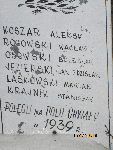 KOSZAR ALEKSY
ROGOWSKI WACŁAW
OSOWSKI BOLESŁAW
JEZIERSKI JAN STANISŁAW
LASKOWSKI MARIAN
KRAJNIK STANISŁAW
POLEGLI NA POLU CHWAŁY
W 1939 R.